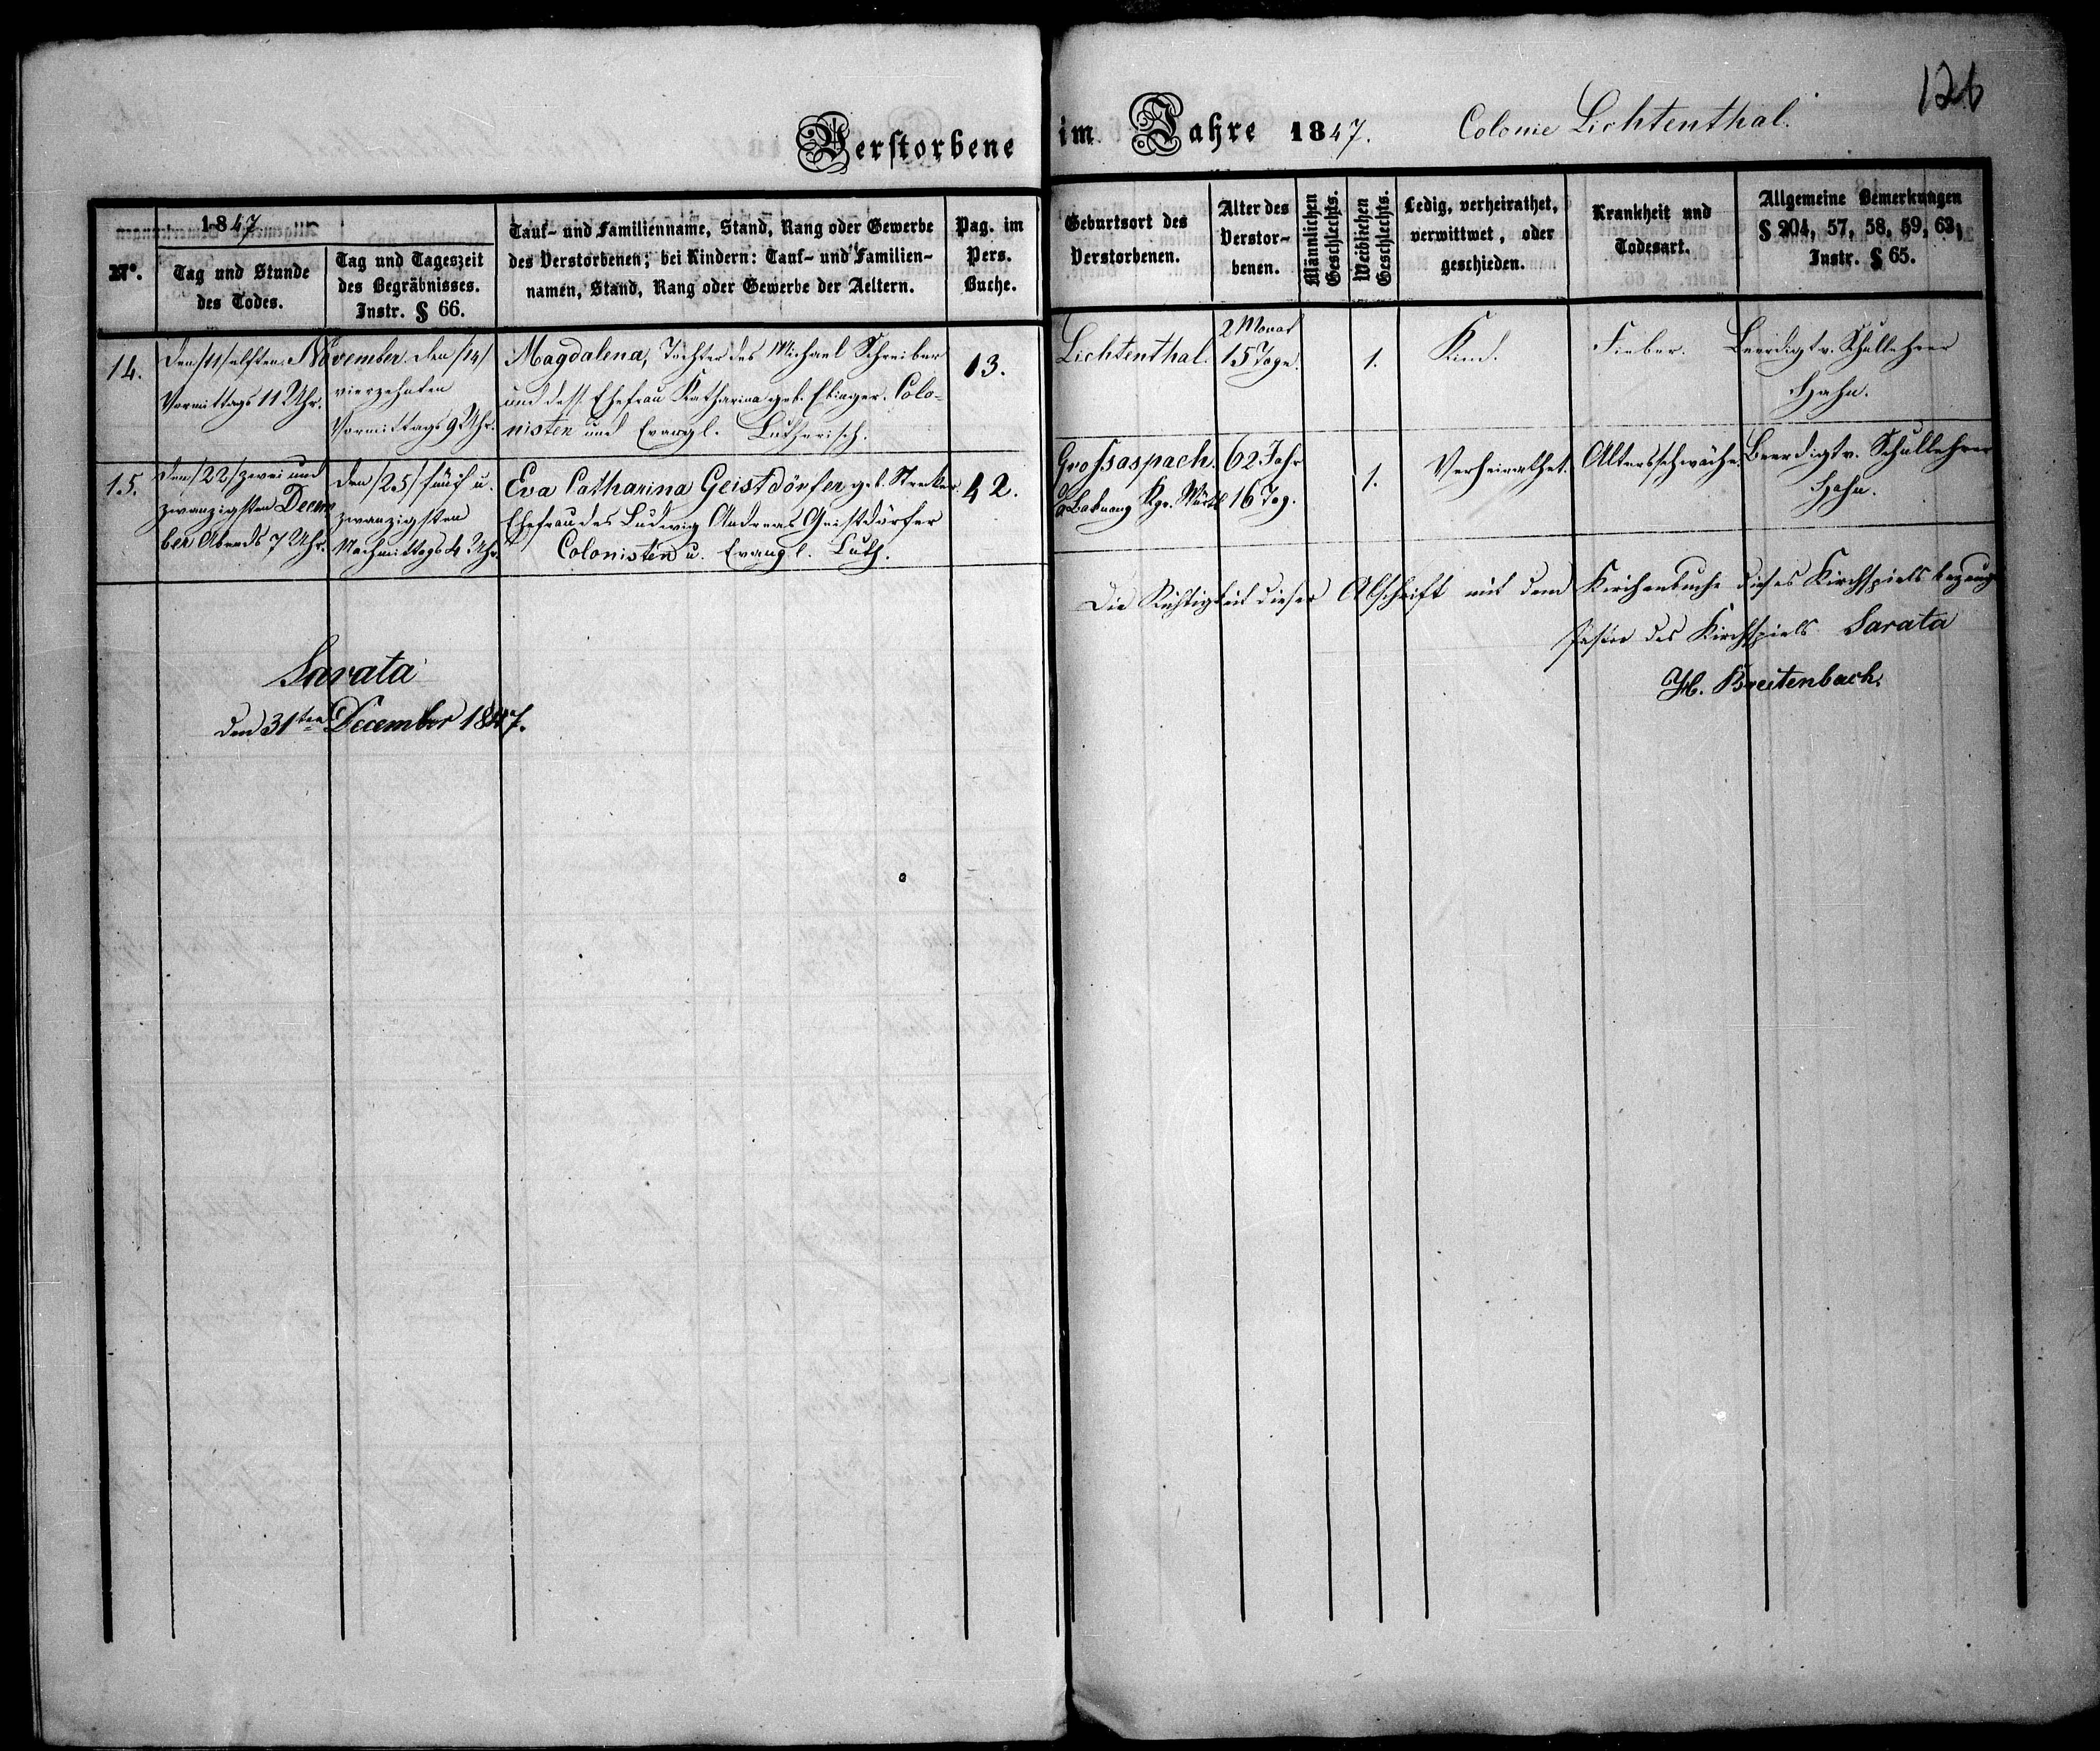 126
Verstorbene im Jahre 1847. Colonie Lichtenthal.
No.
1847
Tag und Stunde
des Todes.
Tag und Tageszeit
des Begräbnisses.
Instr. § 66.
Tauf- und Familienname, Stand, Rang oder Gewerbe
des Verstorbenen; bei Kindern: Tauf- und Familien-
namen, Stand, Rang oder Gewerbe der Aeltern.
Pag. im
Pers.
Buche.
Geburtsort des
Verstorbenen.
Alter des
Verstor-
benen.
Männlichen
Geschlechts.
Weiblichen
Geschlechts.
Ledig, verheirathet,
verwittwet, oder
geschieden.
Krankheit und
Todesart.
Allgemeine Bemerkungen
§ 204, 57, 58, 59, 63,
Instr. § 65.
14.
Den /11/ elften November
Vormittags 11 Uhr.
den /14/
vierzehnten
Vormittags 9 Uhr.
Magdalena, Tochter des Michael Schreiber
und dess. Ehefrau Katharina geb. Ebinger. Colo-
nisten und Evangl. Lutherisch.
13.
Lichtenthal.
2 Monat
15 Tage.
1.
Kind.
Fieber.
Beerdigt v. Schullehrer
Hahn.
15.
Den /22/ zwei und
zwanzigsten Decem
ber Abends 7 Uhr.
den /25/ fünf u.
zwanzigsten
Nachmittags 4 Uhr.
Eva Catharina Geistdörfer geb. Strecker
Ehefrau des Ludwig Andreas Geistdörfer
Colonisten u. Evangl. Luth.
42.
Grossaspach.
Baknang Kgr. Württ
62 Jahr
16 Tag.
1.
Verheirathet.
Altersschwäche.
Beerdigt v. Schullehrer
Hahn.
Die Richtigkeit dieser Abschrift mit dem Kirchenbuche dieses Kirchspiels bezeugt
Pastor des Kirchspiels Sarata
H. Breitenbach.
Sarata
den 31ten December 1847.